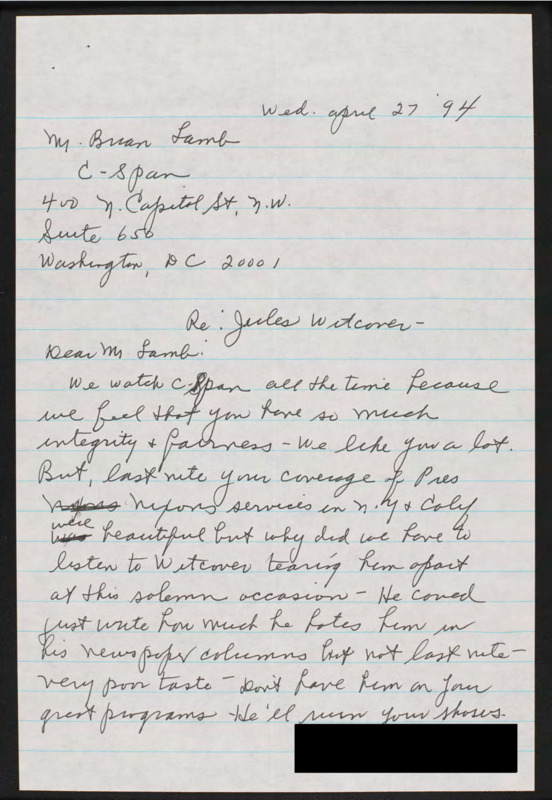 Wed. april 27 '94
Mr. Brian Lamb
C-Span
400 N. Capitol St, N.W.
Suite 650
Washington, DC 20001
Re: Jules Witcover-
Dear Mr Lamb:
We watch C-Span all the time because
we feel that you have so much
integrity & fairness - We like you a lot.
But, last nite your coverage of Pres
Nixons services in N.Y & Calif
were beautiful but why did we have to
listen to Witcover tearing him apart
at this solemn occasion - He coued
just write how much he hates him in
his newspaper columns but not last nite-
very poor taste - Don't have him on your
great programs - He'll ruin your shows.